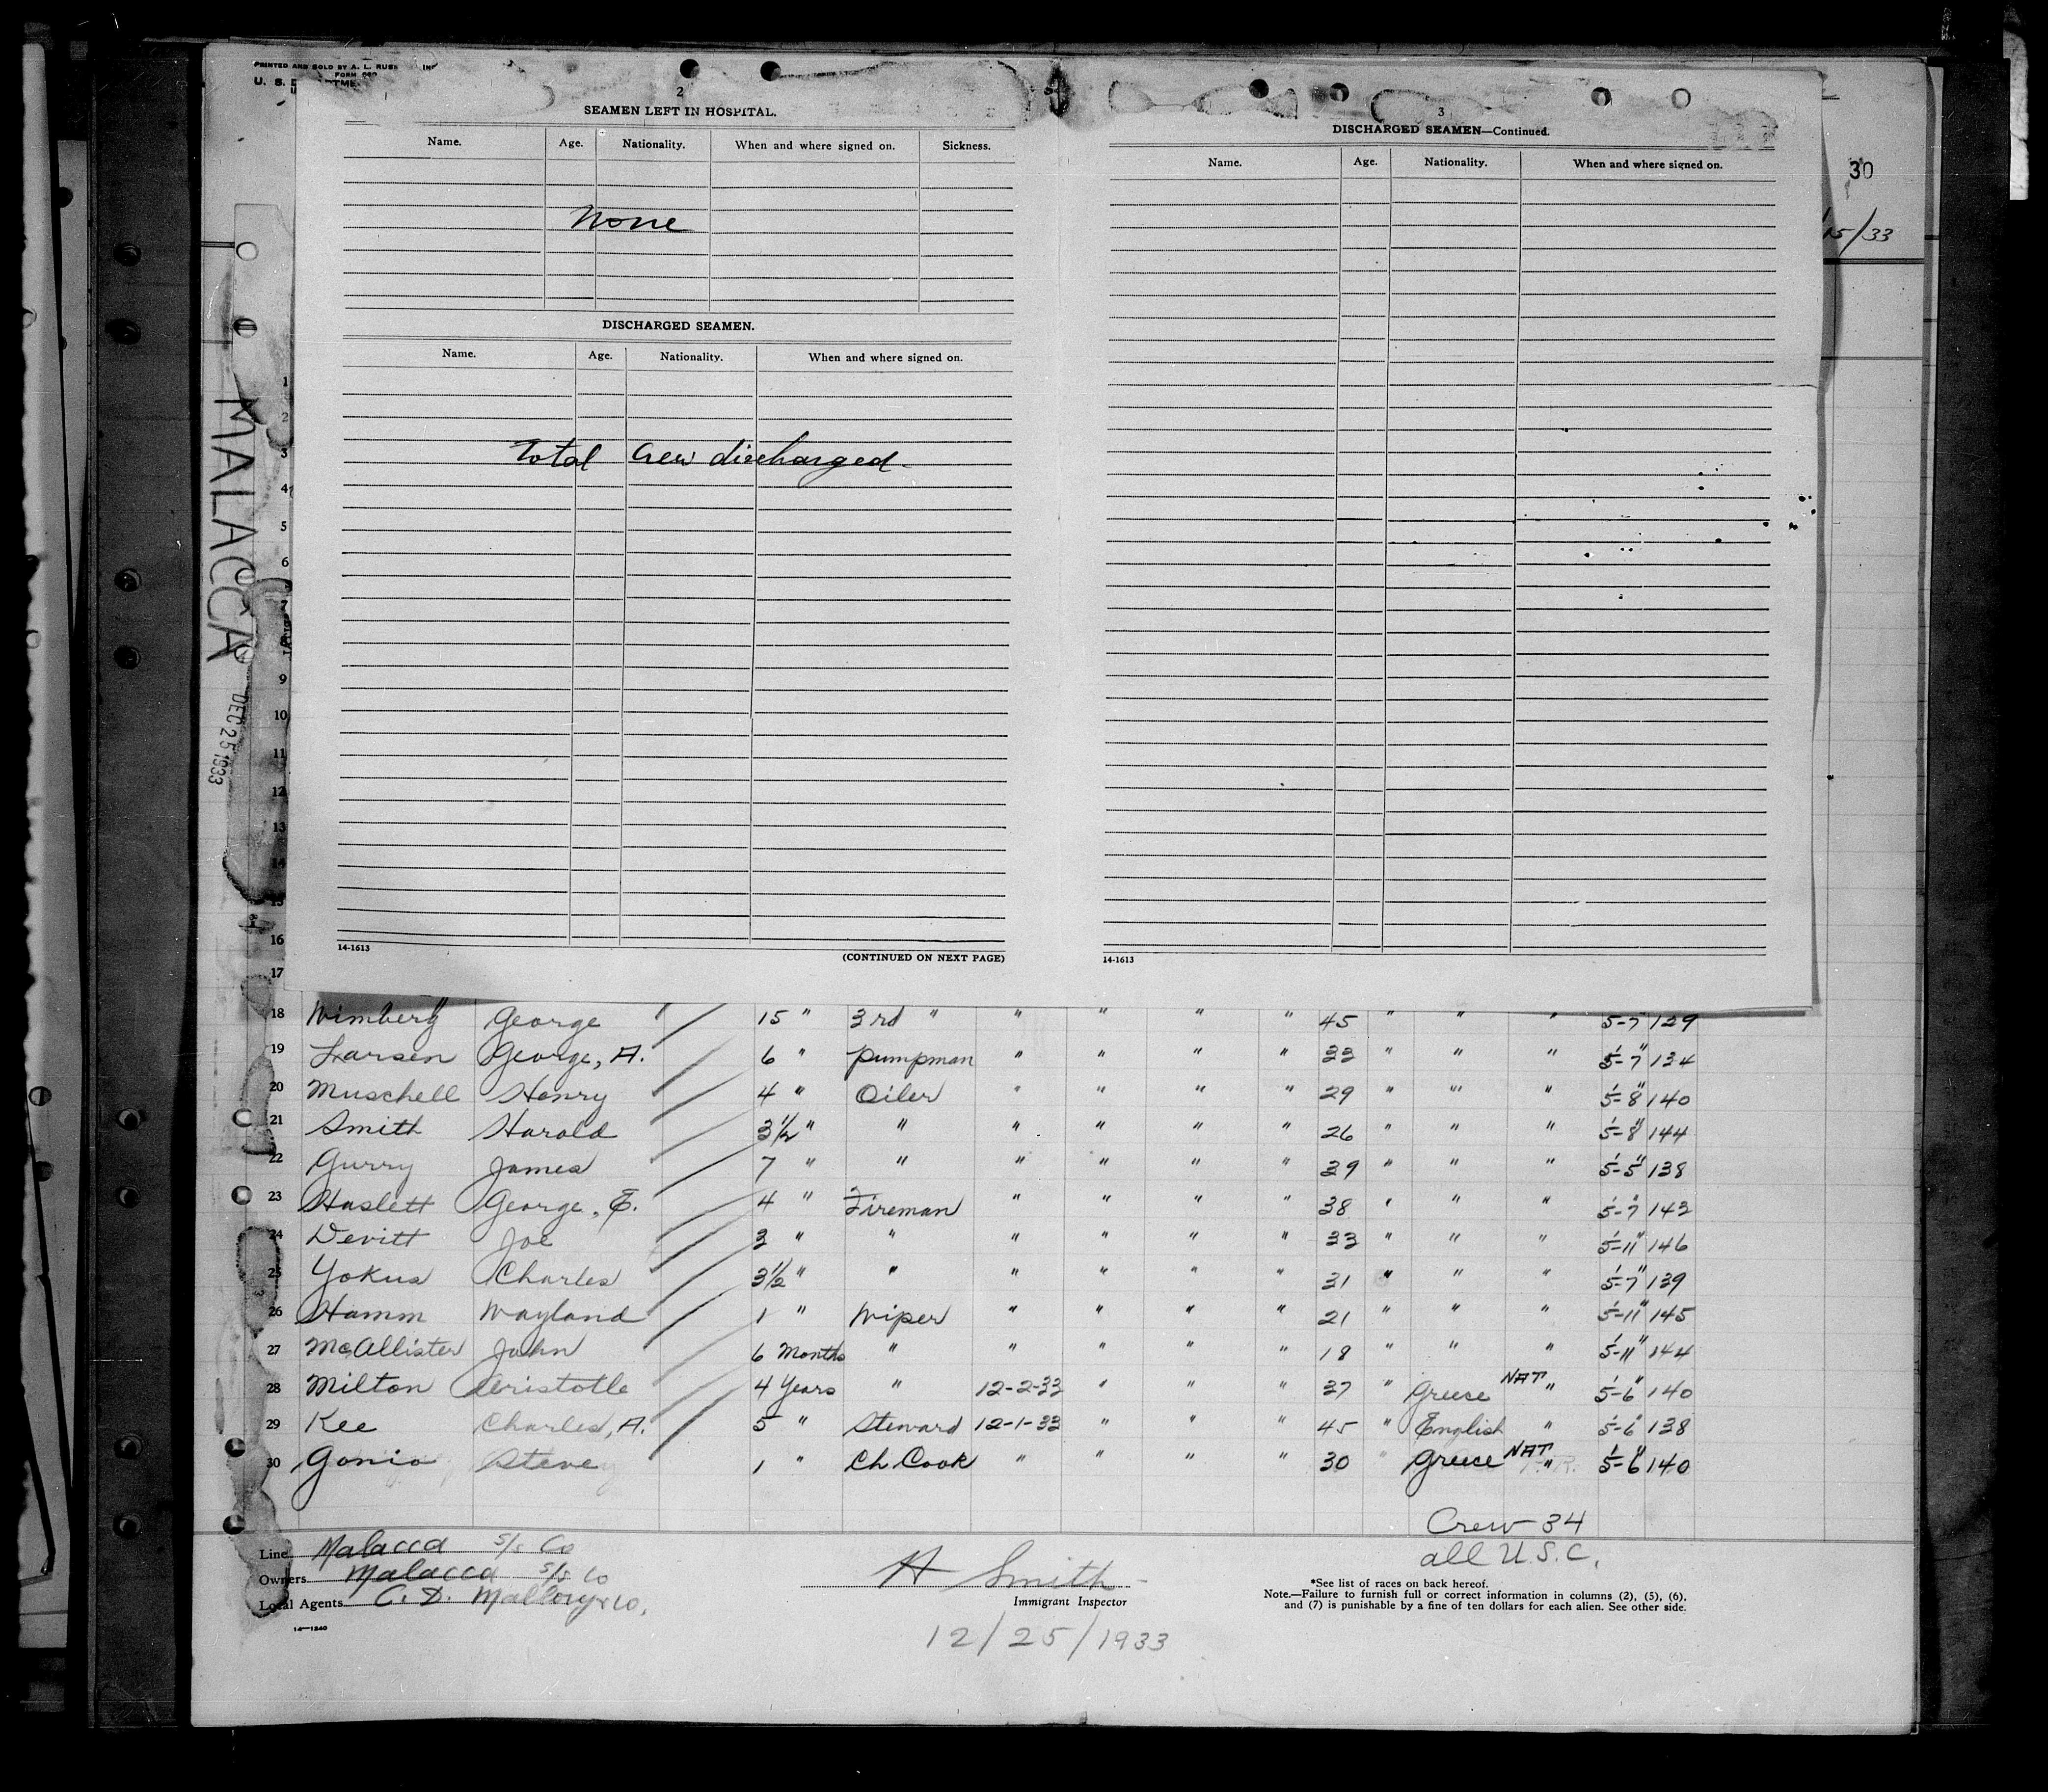 PRINTED AND SOLD BY A. L. RUSS
FORM 680
U. S.
30
15/33
MALACCA
DEC 25 1933
2
SEAMEN LEFT IN HOSPITAL.
Name. Age. Nationality. When and where signed on. Sickness.
None
DISCHARGED SEAMEN.
Name. Age. Nationality. When and where signed on.
Total Crew discharged
14-1613
(CONTINUED ON NEXT PAGE)
3
DISCHARGED SEAMEN—Continued.
Name. Age. Nationality. When and where signed on.
14-1613
1
2
3
4
5
6
7
8
9
10
11
12
13
14
15
16
17
18 Wimberg George 15 " 3rd " " " " " 45 " " " 5-7 129
19 Larsen George, A. 6 " Pumpman " " " " 33 " " " 5'-7" 134
20 Muschell Henry 4 " Oiler " " " " 29 " " " 5'-8" 140
21 Smith Harold 3 1/2 " " " " " " 26 " " " 5'-8" 144
22 Gurry James 7 " " " " " " 39 " " " 5'-5" 138
23 Haslett George, E. 4 " Fireman " " " " 38 " " " 5'-7" 142
24 Devitt Joe 3 " " " " " " 33 " " " 5'-11" 146
25 Yokus Charles 3 1/2 " " " " " " 31 " " " 5'-7" 139
26 Hamm Wayland 1 " Wiper " " " " 21 " " " 5'-11" 145
27 McAllister John 6 Months " " " " " 18 " " " 5'-11" 144
28 Milton Aristotle 4 Years " 12-2-33 " " " 37 " Greece NAT " 5'-6" 140
29 Kee Charles, A. 5 " Steward 12-1-33 " " " 45 " English " 5'-6" 138
30 Gonio Steve 1 " Ch Cook " " " " 30 " Greece NAT " 5'-6" 140
Crew 34
all U.S.C.
Line Malacca S/S Co
Owners Malacca S/S Co
Local Agents C. D. Mallory & Co.
14-1240
H Smith
Immigrant Inspector
12/25/1933
*See list of races on back hereof.
Note.—Failure to furnish full or correct information in columns (2), (5), (6),
and (7) is punishable by a fine of ten dollars for each alien. See other side.